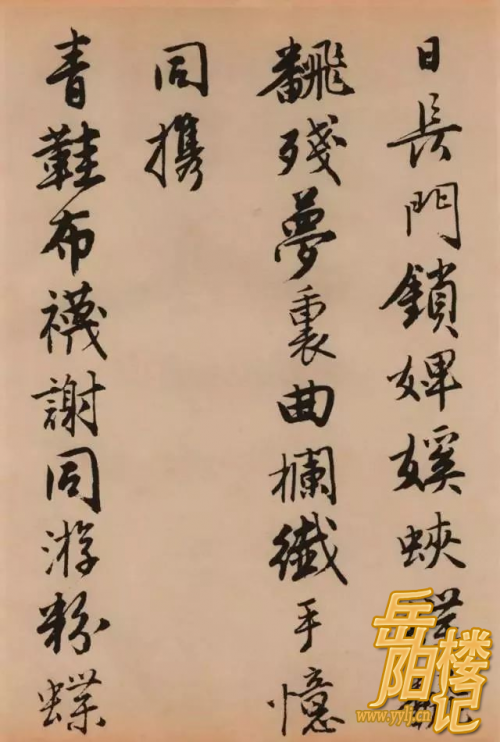 日長門鎖婢㜎蛺蝶
飜殘夢裏曲欄纖手憶
同携
青鞋布襪謝同游粉蝶
岳阳楼记
www.yylj.cn